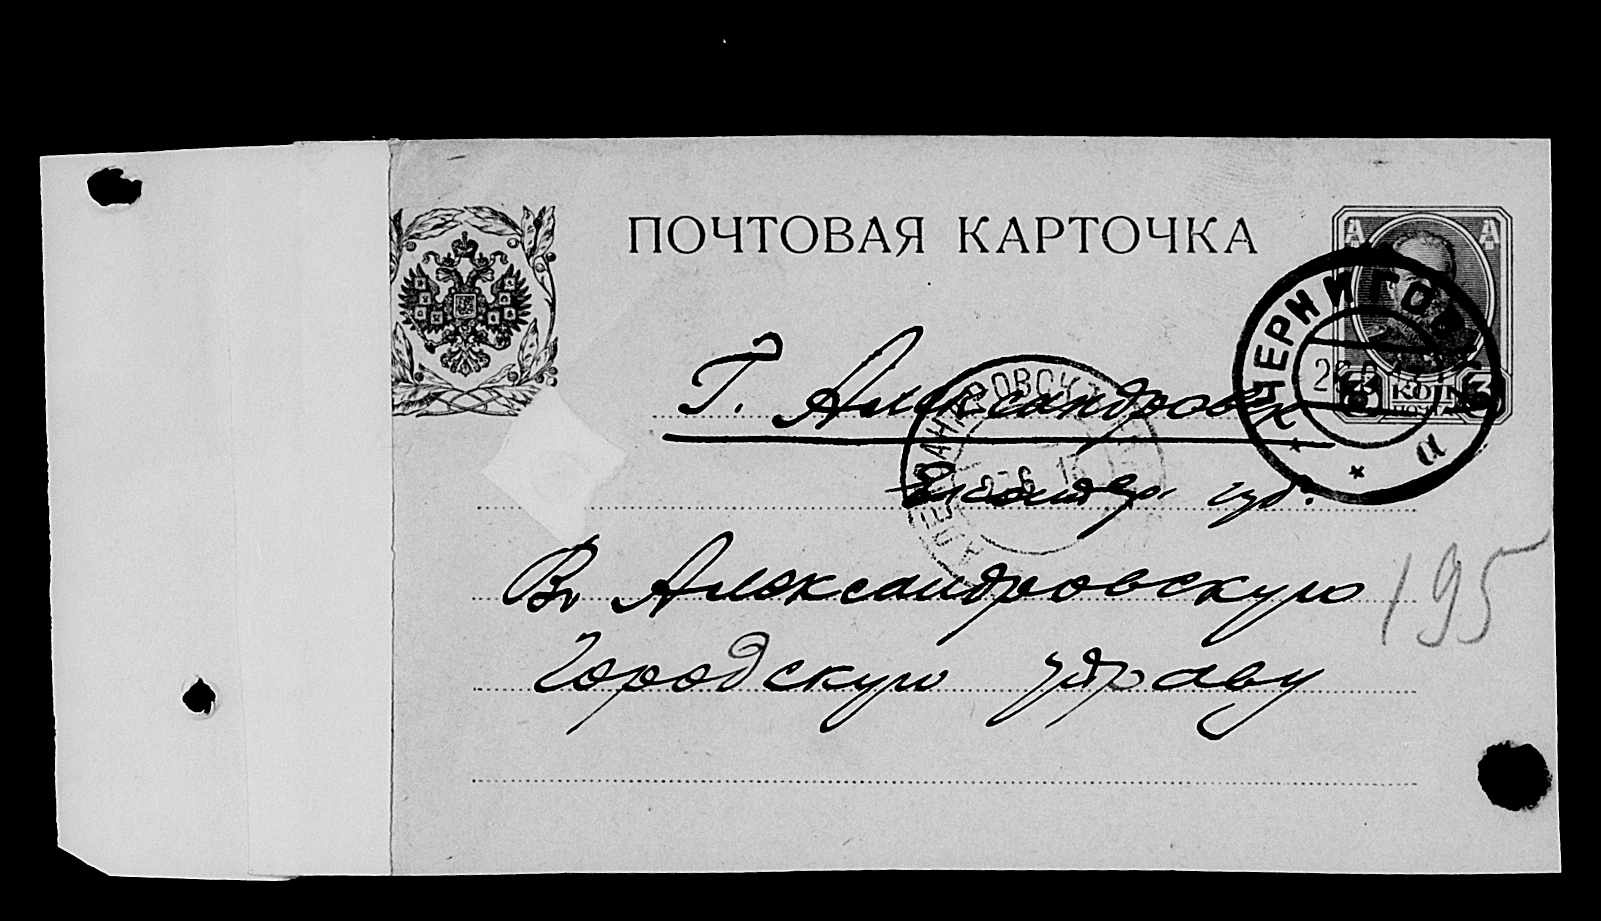 ПОЧТОВАЯ КАРТОЧКА
ЧЕРНИГОВ
3 КОП 3
Г. Александровск
Екатер. гу.
Въ Александровскую
Городскую управу
195